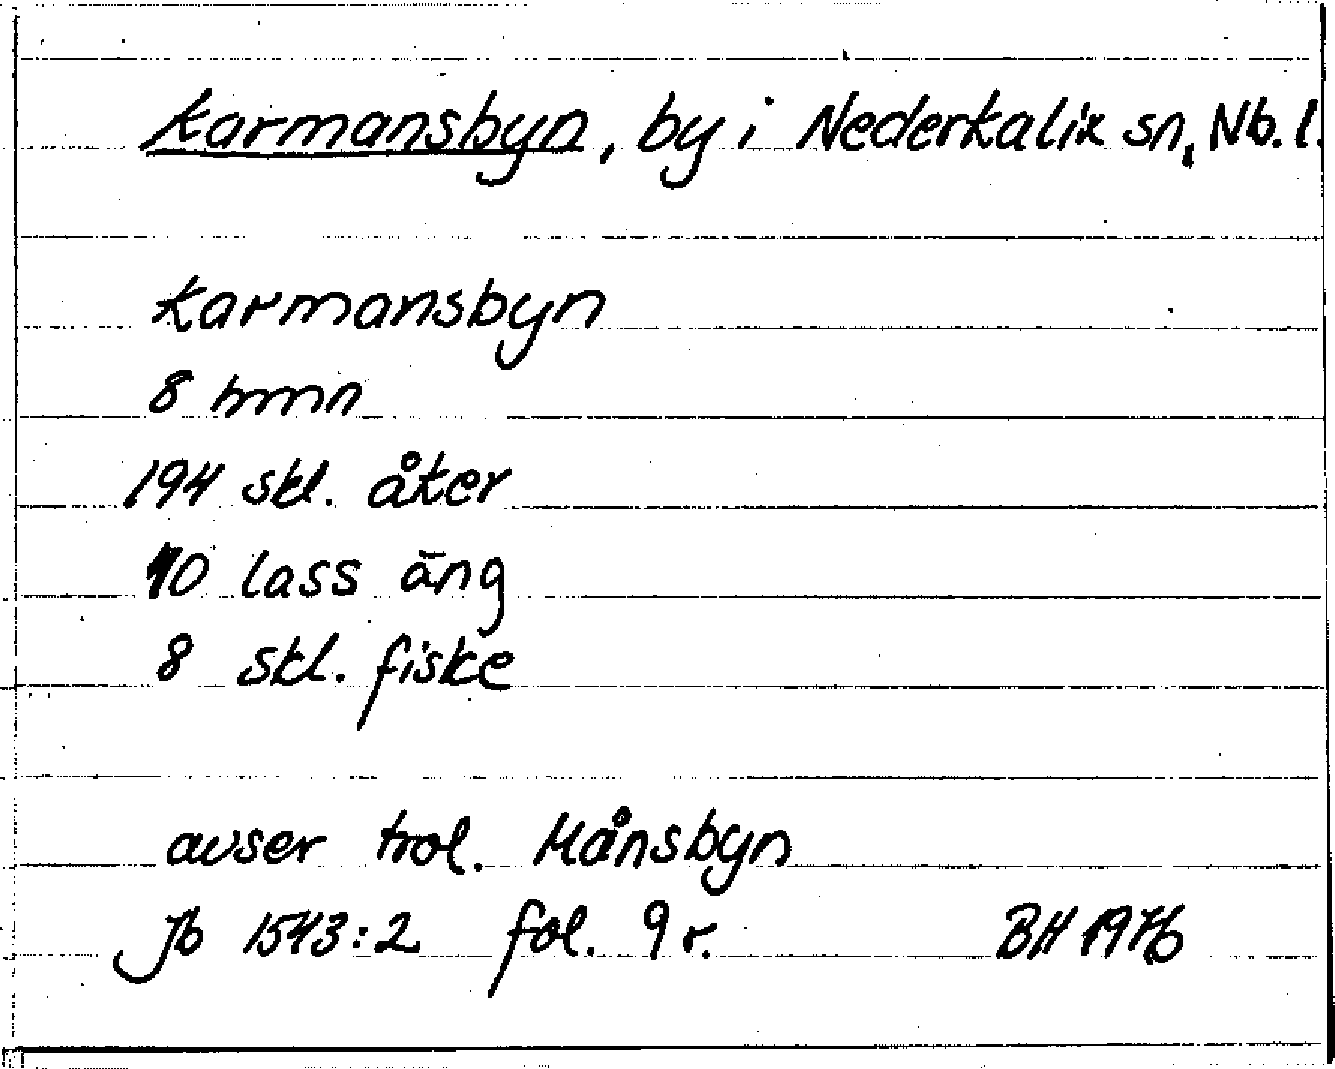 Karmansbyn, by i Nederkalix sn, Nb. l.
Karmansbyn
8 hmn
194 skl. åker
10 lass äng
8 skl. fiske
avser trol. Månsbyn
Jb 1543:2 fol. 9 r. BH 1976